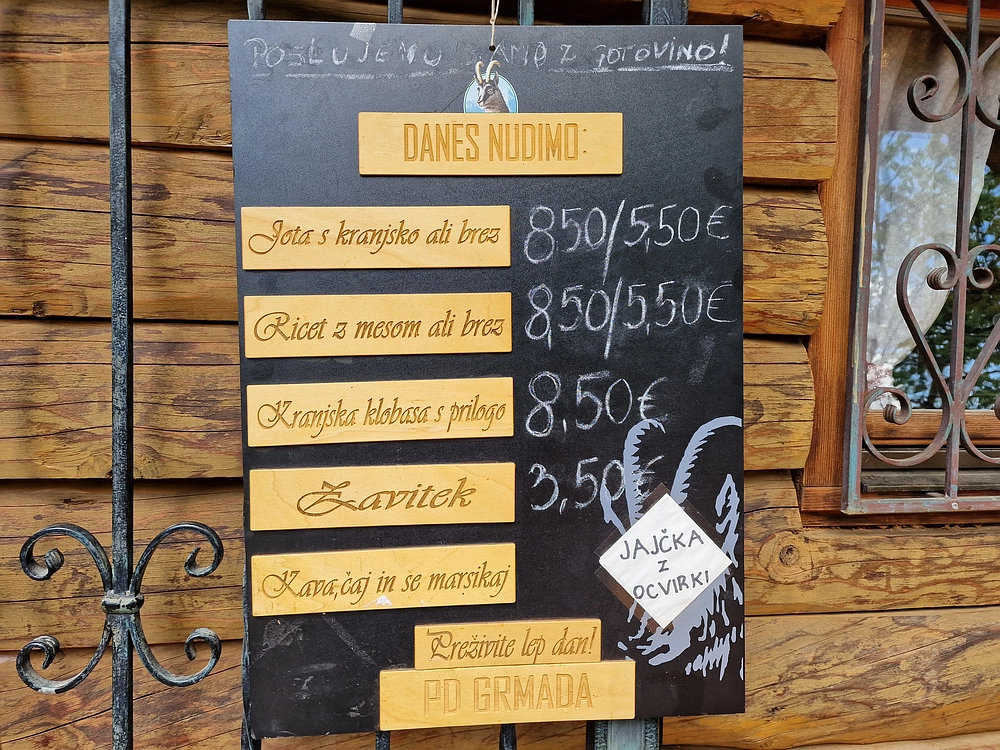 POSLUJEMO SAMO Z GOTOVINO!
DANES NUDIMO:
Jota s kranjsko ali brez 8.50/5,50€
Ricet z mesom ali brez 8,50/5,50€
Kranjska klobasa s prilogo 8,50€
Zavitek 3,50€
Kava, čaj in se marsikaj
JAJČKA
Z
OCVIRKI
Preživite lep dan!
PD GRMADA